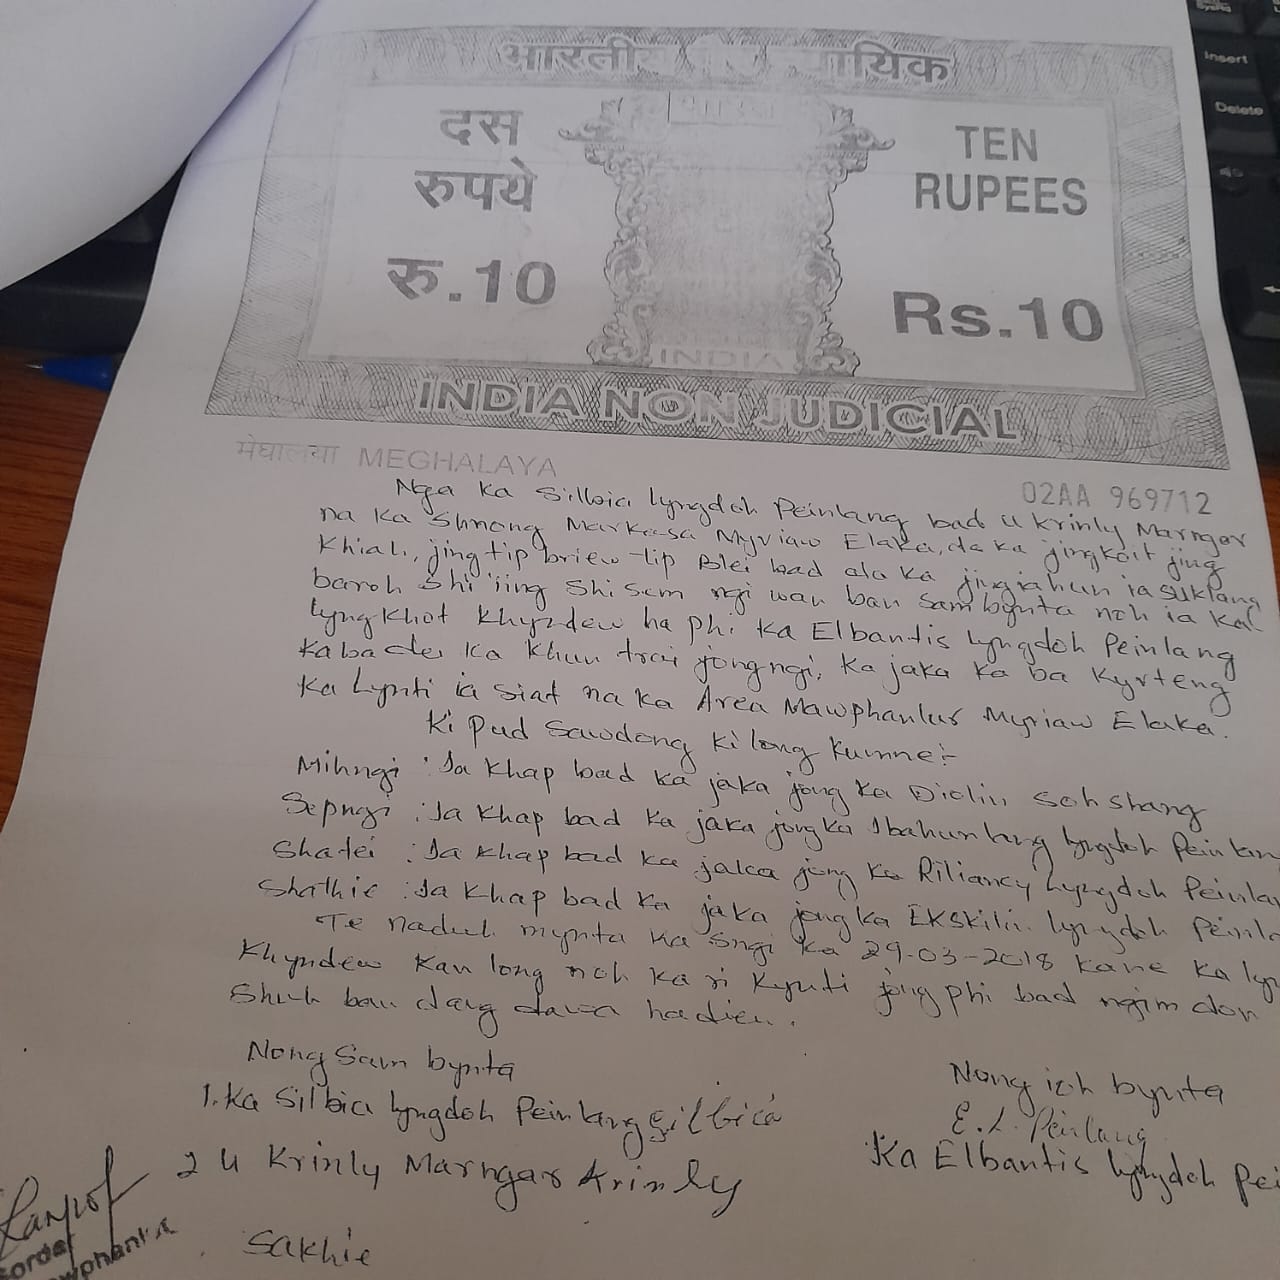 भारतीय गैर न्यायिक
भारत
दस
रुपये
रु.10
TEN
RUPEES
Rs.10
INDIA
INDIA NON JUDICIAL
मेघालया MEGHALAYA
02AA 969712
Nga Ka Silbia Lyngdoh Peinlang bad u Krinly Marngar
na ka Shnong Markasa Myriaw Elaka, da ka jingkoit jing
Khiah, jingtip briew tip Blei bad da ka jingiahun ia suklang
baroh shi iing shi sem ngi wan ban sam bynta noh ia kal
lyngkhot Khyndew ha phi ka Elbantis Lyngdoh Peinlang
Kaba dei ka khun trai jong ngi, ka jaka ka ba kyrteng
Ka Lynti ia siat na ka Area Mawphanlur Myriaw Elaka.
Ki Pud Sawdong ki long kumne:-
Mihngi : Ia khap bad ka jaka jong ka Diolin Sohshang
Sepngi : Ia khap bad ka jaka jong ka Ibahunlang Lyngdoh Peinlan
Shatei : Ia khap bad ka jaka jong ka Riliancy Lyngdoh Peinla
Shathie : Ia khap bad ka jaka jong ka Ekskilin Lyngdoh Peinla
Te naduh mynta ka sngi ka 29-03-2018 kane ka ly
Khyndew kan long noh ka ri Kynti jong phi bad ngim don
Shuh ban dang dawa hadien.
Nong Sam bynta
Nong ioh bynta
1. Ka Silbia Lyngdoh Peinlang Silbia
E. L. Peinlang
2 U Krinly Marngar Krinly
Ka Elbantis Lyngdoh Pei
Sakhie